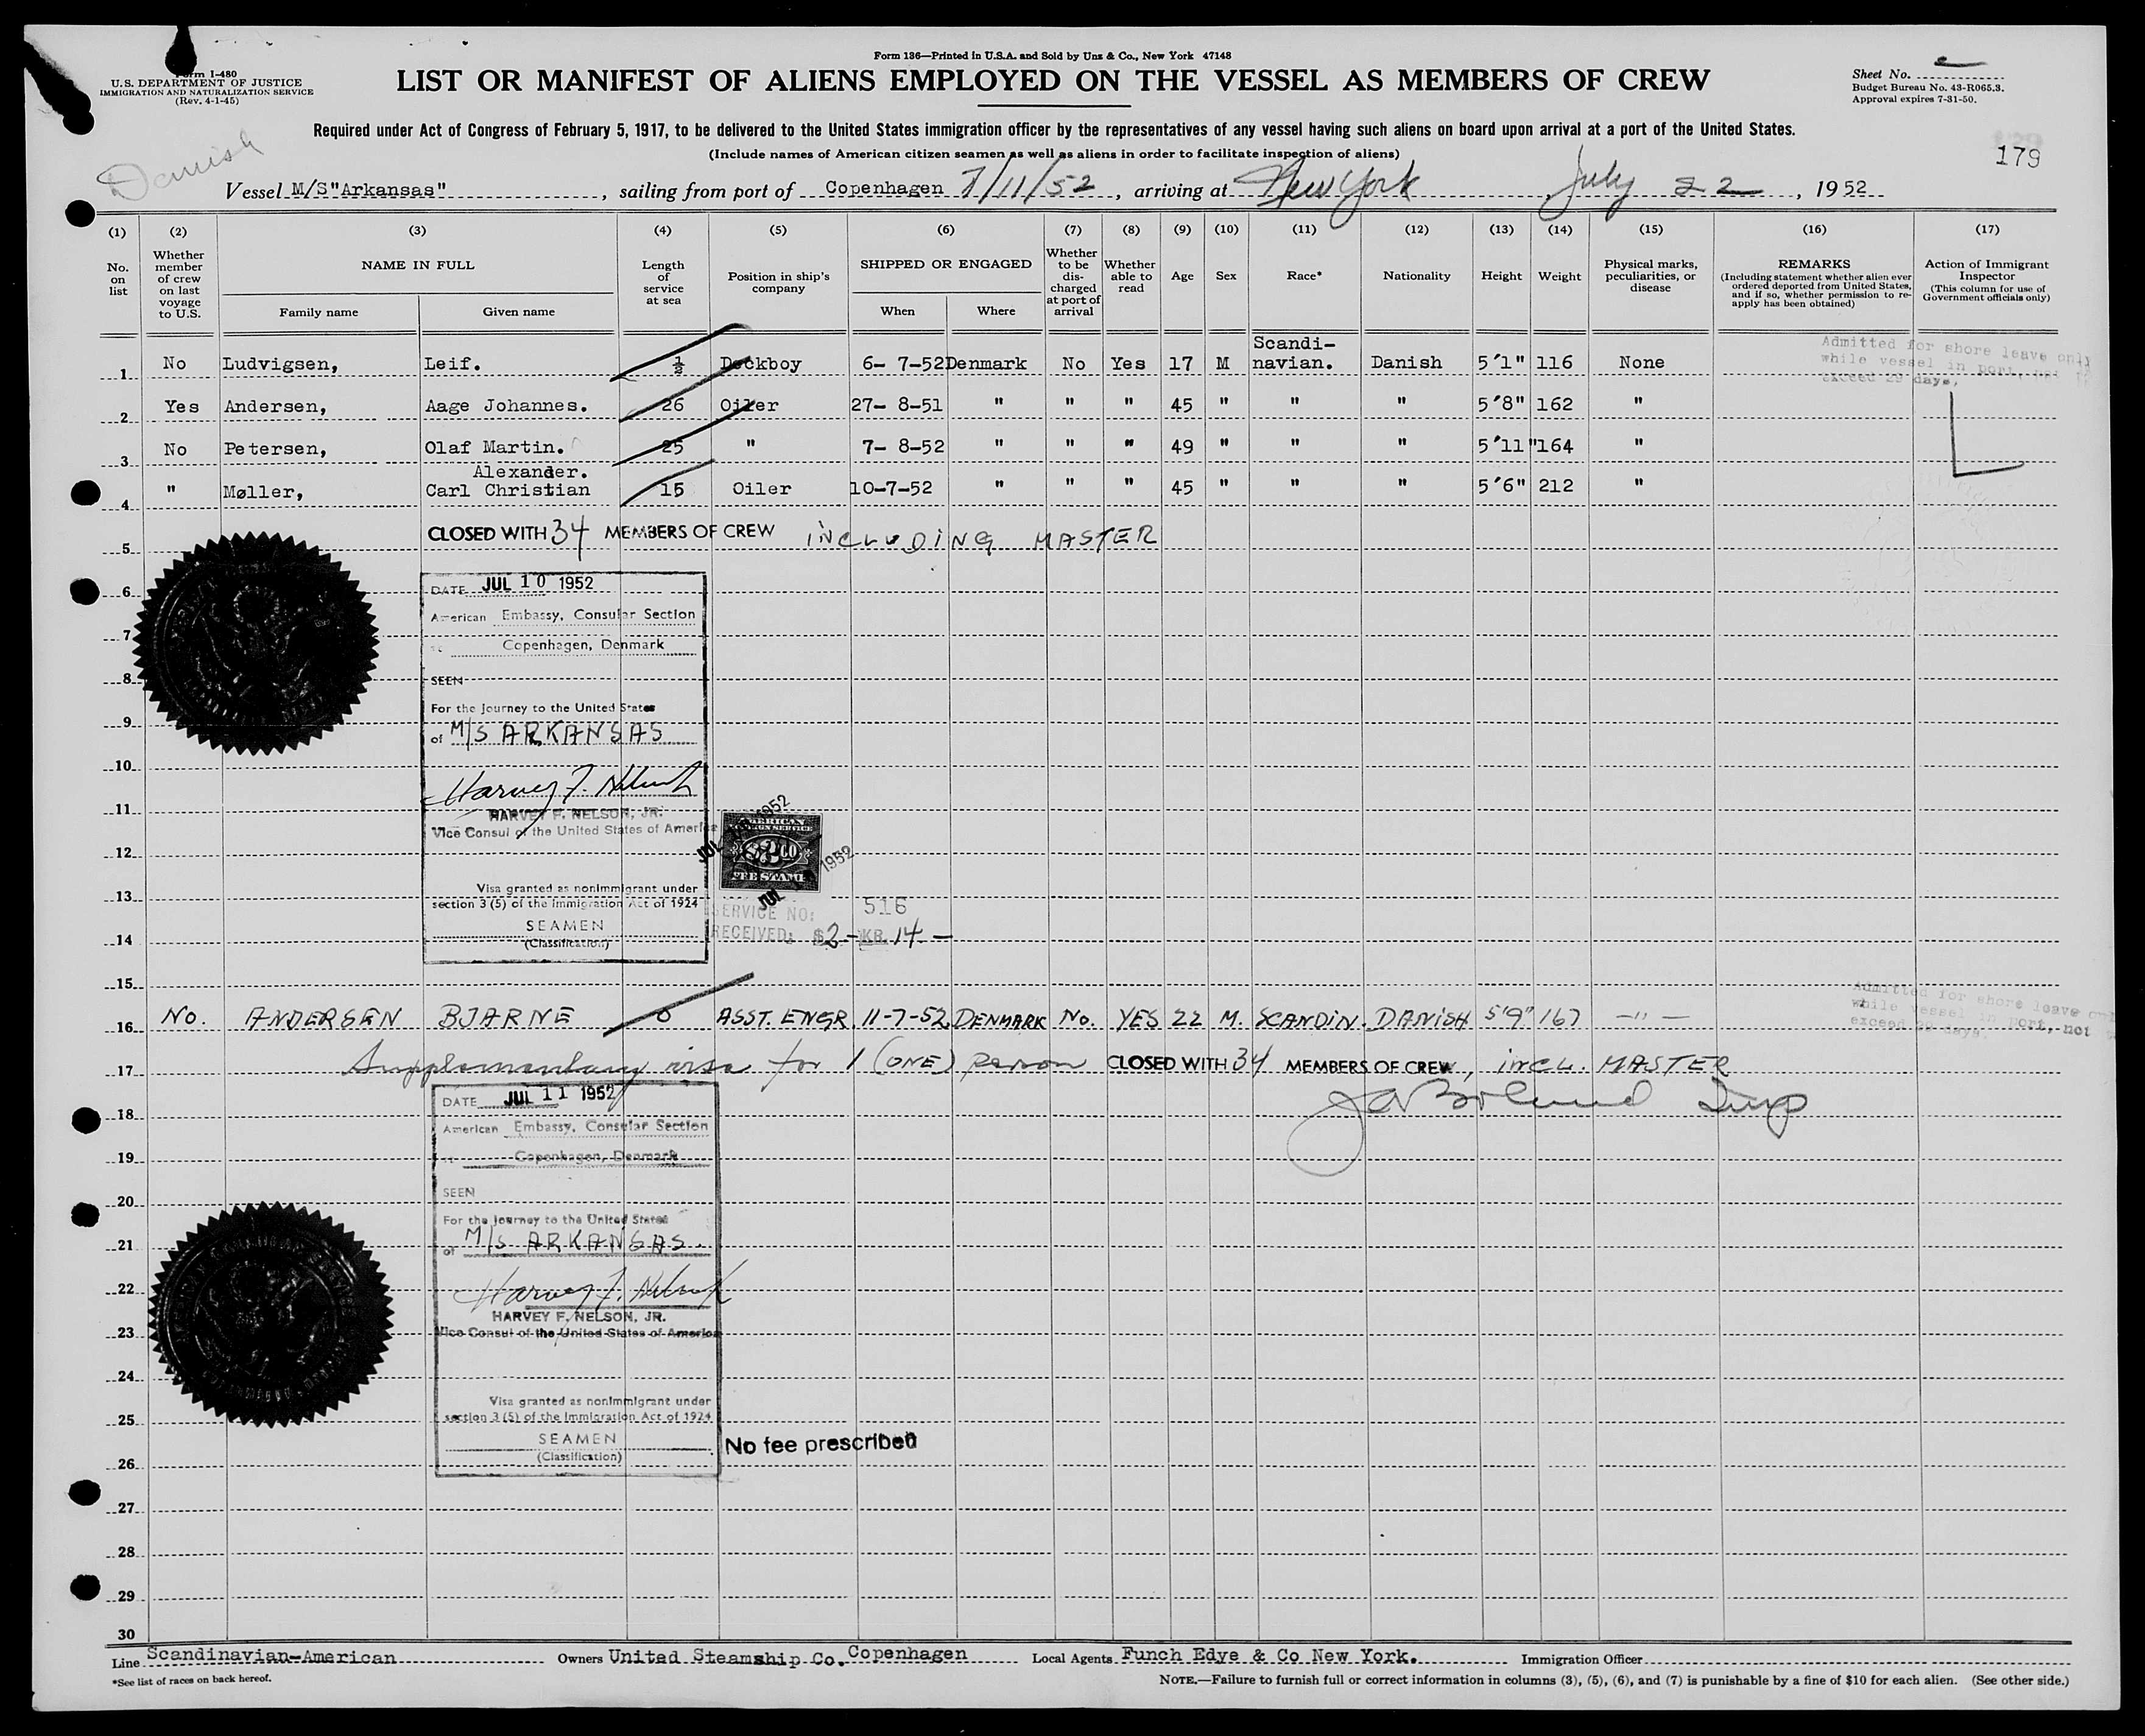 Form 136—Printed in U.S.A. and Sold by Unz & Co., New York 47148
Form I-480
U.S. DEPARTMENT OF JUSTICE
IMMIGRATION AND NATURALIZATION SERVICE
(Rev. 4-1-45)
LIST OR MANIFEST OF ALIENS EMPLOYED ON THE VESSEL AS MEMBERS OF CREW
Sheet No.
Budget Bureau No. 43-R065.3.
Approval expires 7-31-50.
Required under Act of Congress of February 5, 1917, to be delivered to the United States immigration officer by the representatives of any vessel having such aliens on board upon arrival at a port of the United States.
(Include names of American citizen seamen as well as aliens in order to facilitate inspection of aliens)
179
Danish
Vessel M/S"Arkansas" , sailing from port of Copenhagen 7/11/52 , arriving at New York July 22 , 1952
(1) (2) (3) (4) (5) (6) (7) (8) (9) (10) (11) (12) (13) (14) (15) (16) (17)
No. on list
Whether member of crew on last voyage to U.S.
NAME IN FULL
Family name
Given name
Length of service at sea
Position in ship's company
SHIPPED OR ENGAGED
When
Where
Whether to be discharged at port of arrival
Whether able to read
Age
Sex
Race*
Nationality
Height
Weight
Physical marks, peculiarities, or disease
REMARKS
(Including statement whether alien ever ordered deported from United States, and if so, whether permission to reapply has been obtained)
Action of Immigrant Inspector
(This column for use of Government officials only)
1 No Ludvigsen, Leif. ½ Deckboy 6- 7-52 Denmark No Yes 17 M Scandi-navian. Danish 5'1" 116 None
Admitted for shore leave only
while vessel in port, not to
exceed 29 days.
2 Yes Andersen, Aage Johannes. 26 Oiler 27- 8-51 " " " 45 " " " 5'8" 162 "
3 No Petersen, Olaf Martin. 25 " 7- 8-52 " " " 49 " " " 5'11" 164 "
Alexander.
4 " Møller, Carl Christian 15 Oiler 10-7-52 " " " 45 " " " 5'6" 212 "
CLOSED WITH 34 MEMBERS OF CREW INCLUDING MASTER
5
6
DATE JUL 10 1952
American Embassy, Consular Section
7
Copenhagen, Denmark
8
SEEN
For the journey to the United States
9
of M/S ARKANSAS
10
Harvey F. Nelson Jr
11
HARVEY F. NELSON, JR.
Vice Consul of the United States of America
JUL 1952
AMERICAN
FOREIGN SERVICE
$2.00
FEE STAMP
JUL 1952
12
Visa granted as nonimmigrant under
13
section 3 (5) of the Immigration Act of 1924
SERVICE NO: 516
SEAMEN
RECEIVED: $2- KR. 14.—
14
(Classification)
15
16 No. ANDERSEN BJARNE 0 ASST. ENGR 11-7-52 DENMARK No. YES 22 M. SCANDIN. DANISH 5'9" 167 —"—
Admitted for shore leave only
while vessel in port, not
exceed 29 days.
17 Supplementary visa for 1 (ONE) person CLOSED WITH 34 MEMBERS OF CREW, incl. MASTER
DATE JUL 11 1952
18
American Embassy, Consular Section
19
Copenhagen, Denmark
20
SEEN
For the journey to the United States
21
of M/S ARKANSAS.
22
Harvey F. Nelson Jr
HARVEY F. NELSON, JR.
23
Vice Consul of the United States of America
24
Visa granted as nonimmigrant under
25
section 3 (5) of the Immigration Act of 1924
SEAMEN
No fee prescribed
(Classification)
26
27
28
29
30
Line Scandinavian-American Owners United Steamship Co. Copenhagen Local Agents Funch Edye & Co New York. Immigration Officer
*See list of races on back hereof.
NOTE.—Failure to furnish full or correct information in columns (3), (5), (6), and (7) is punishable by a fine of $10 for each alien. (See other side.)